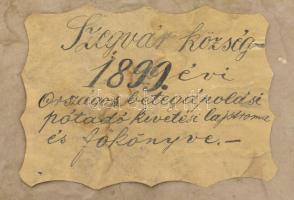 Szegvár község
1899. évi
Országos betegápolási
pótadó kivetési lajstroma
és főkönyve.-